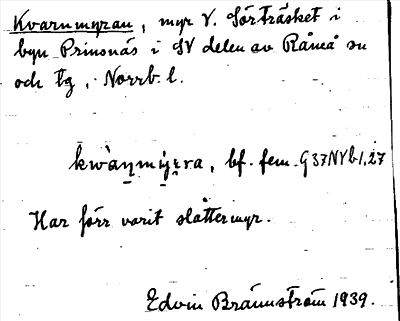 Kvarnmyran, myr V. Sörträsket i
byn Prinsnäs i SV delen av Råneå sn
och tg, Norrb. l.
kwàṇmỳ̢ra, bf. fem. G37NVb1,27
Har förr varit slåttermyr.
Edvin Brännström 1939.